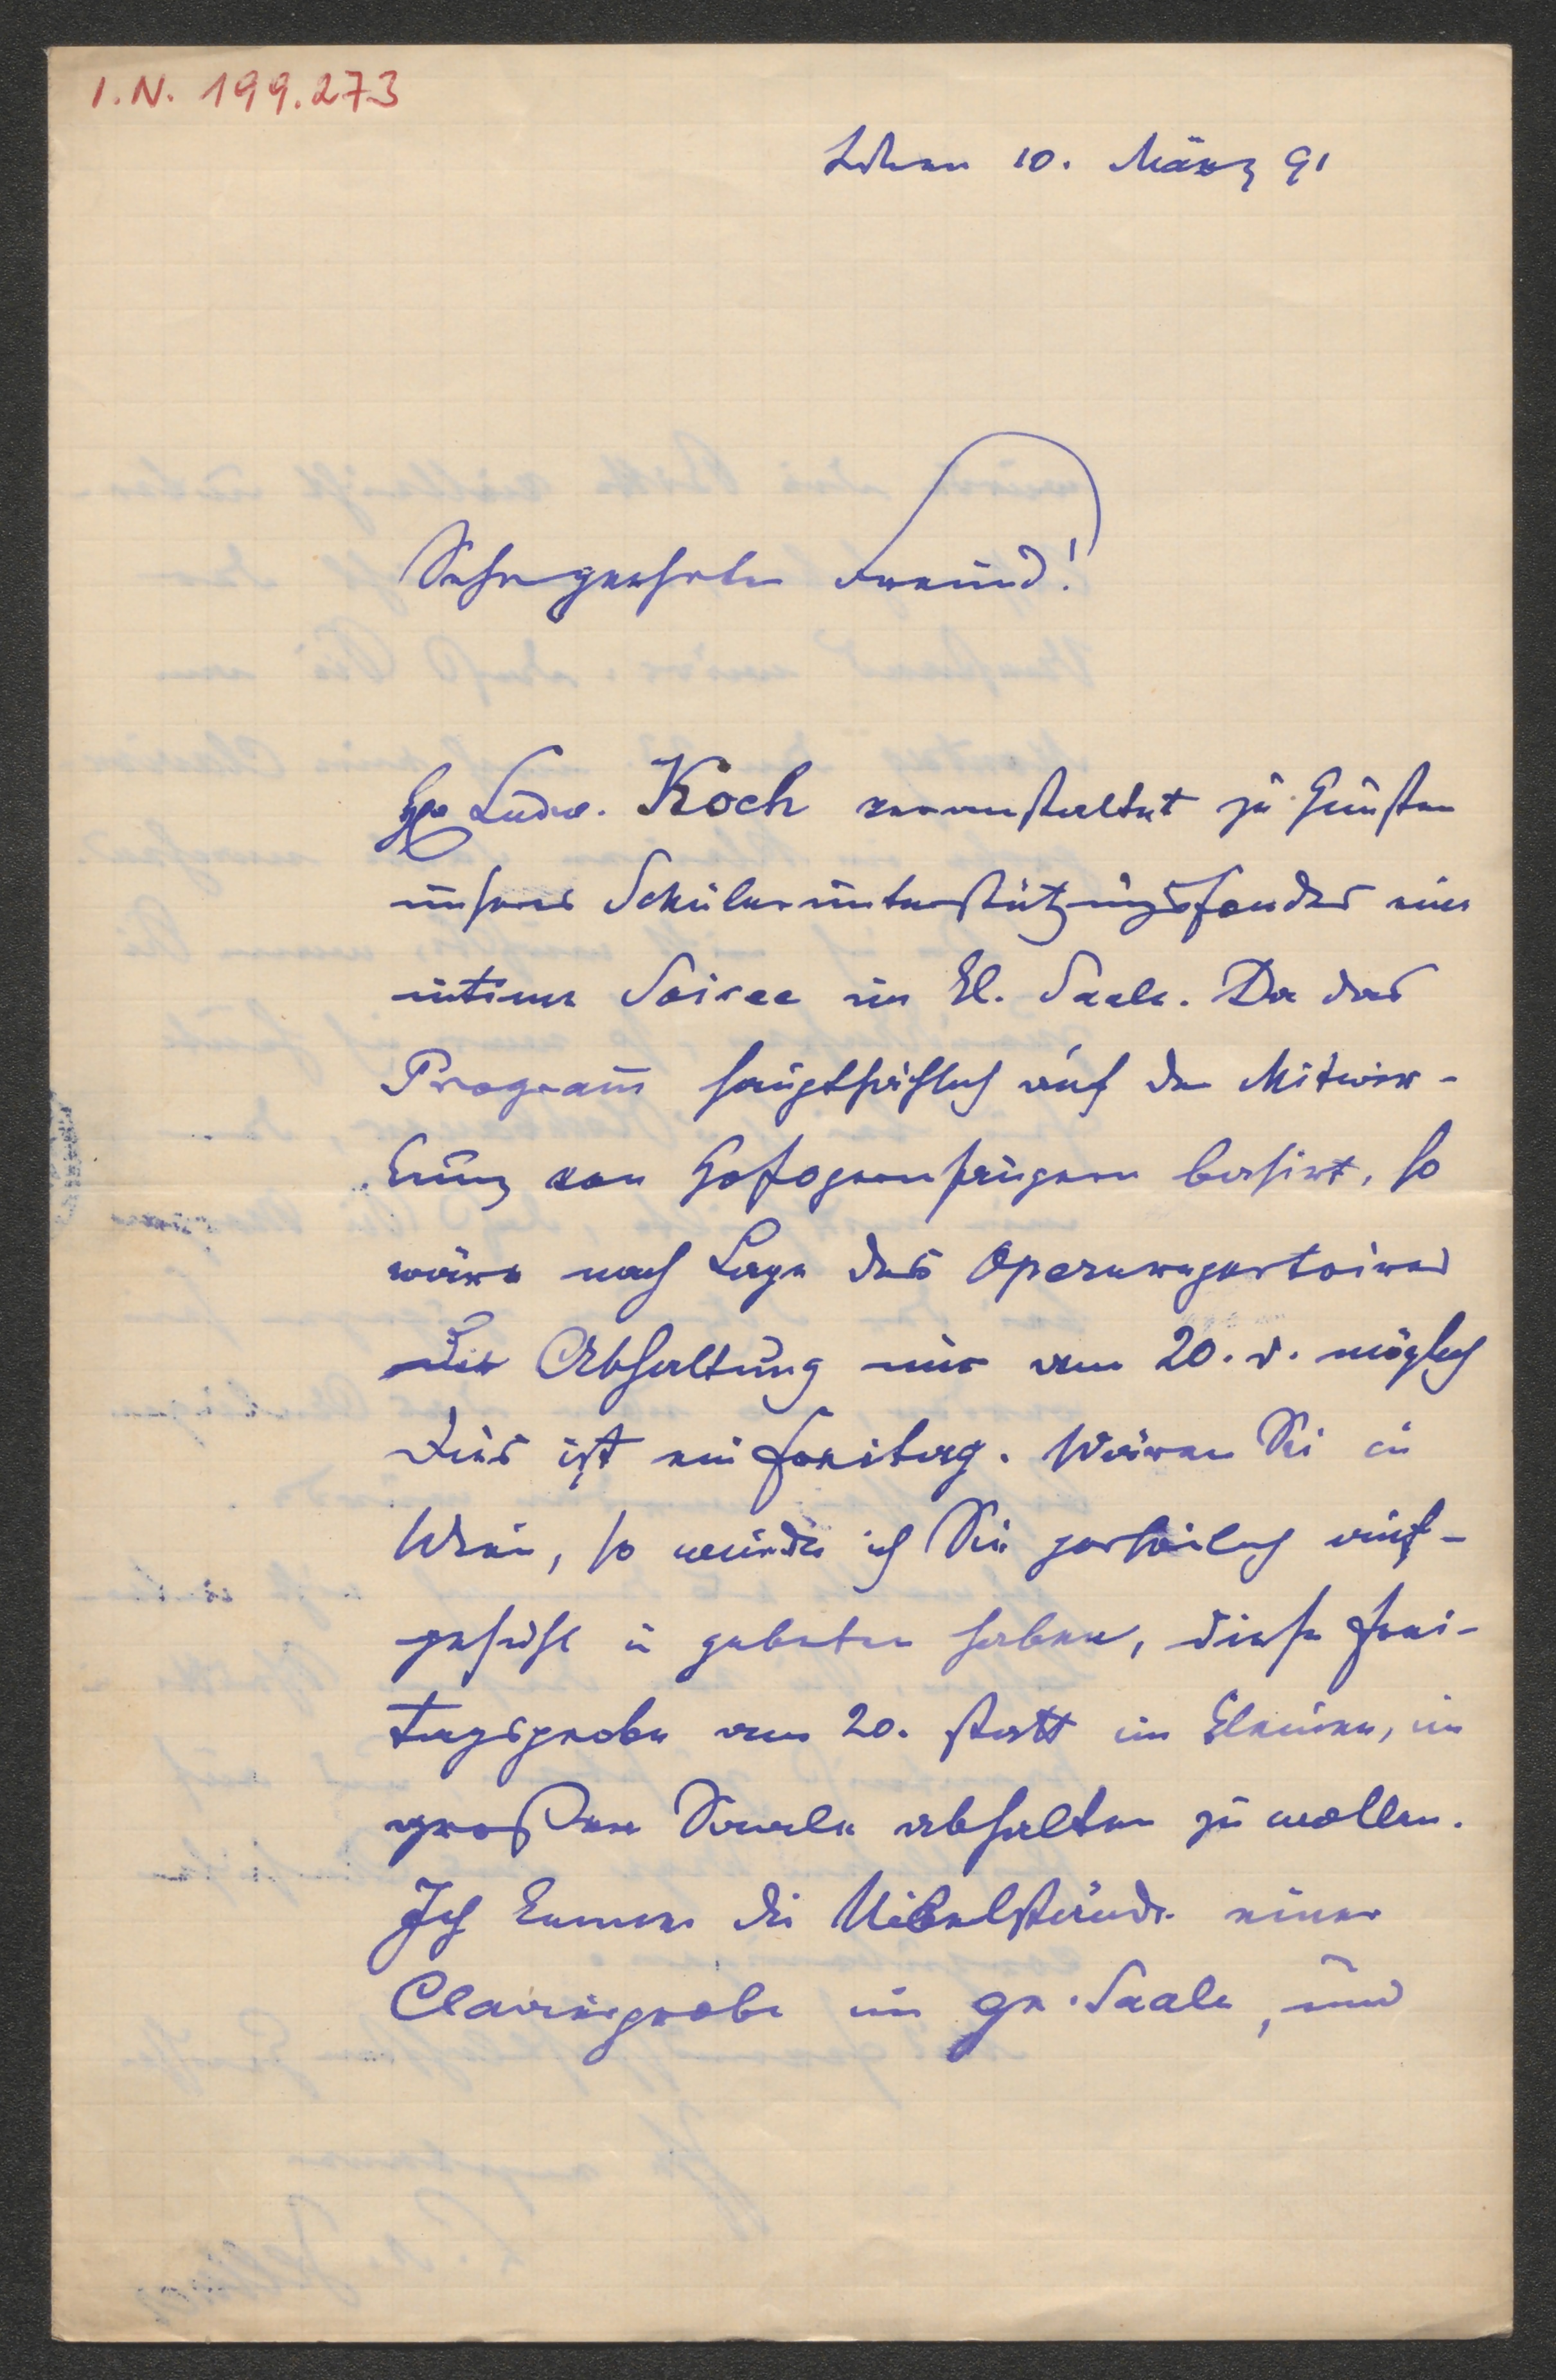 I.N. 199.273
Wien 10. März 91
Sehr geehrter Freund!
Hr Ludw. Koch veranstaltet zu Gunsten
unseres Schülerunterstützungsfondes eine
intime Soiree im kl. Saale. Da das
Programm hauptsächlich auf der Mitwir-
kung von Hofopernsängern basirt, so
wäre nach Lage des Opernrepertoires
die Abhaltung nur am 20. d. möglich
Dies ist ein Freitag. Wären Sie in
Wien, so würde ich Sie persönlich auf-
gesucht u gebeten haben, diese Frei-
tagsprobe am 20. statt im kleinen, im
großen Saale abhalten zu wollen.
Ich kenne die Uibelstände einer
Clavierprobe im gr. Saale, und